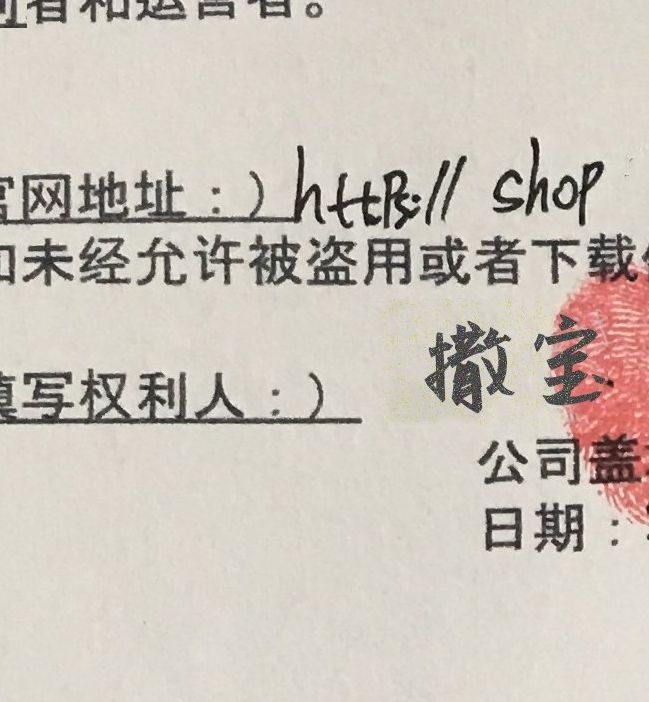 者和运营者。
官网地址：）https:// shop
如未经允许被盗用或者下载
填写权利人：）撒宝
公司盖
日期：